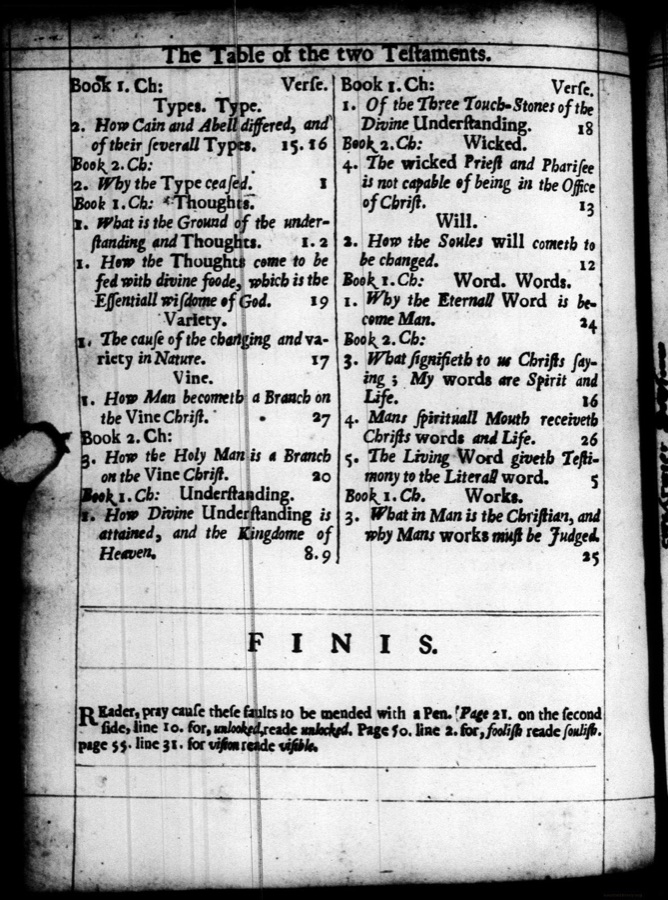 The Table of the two Teſtaments.
Book 1. Ch: Verſe.
Types. Type.
2. How Cain and Abell differed, and
of their ſeverall Types. 15.16
Book 2. Ch:
2. Why the Type ceaſed. 1
Book 1. Ch: Thoughts.
1. What is the Ground of the under-
ſtanding and Thoughts. 1.2
1. How the Thoughts come to be
fed with divine foode, which is the
Eſſentiall wiſdome of God. 19
Variety.
1. The cauſe of the changing and va-
riety in Nature. 17
Vine.
1. How Man becometh a Branch on
the Vine Chriſt. 27
Book 2. Ch:
3. How the Holy Man is a Branch
on the Vine Chriſt. 20
Book 1. Ch: Underſtanding.
1. How Divine Underſtanding is
attained, and the Kingdome of
Heaven. 8.9
Book 1. Ch: Verſe.
1. Of the Three Touch-Stones of the
Divine Underſtanding. 18
Book 2. Ch: Wicked.
4. The wicked Prieſt and Phariſee
is not capable of being in the Office
of Chriſt. 13
Will.
2. How the Soules will cometh to
be changed. 12
Book 1. Ch: Word. Words.
1. Why the Eternall Word is be-
come Man. 24
Book 2. Ch:
3. What ſignifieth to us Chriſts ſay-
ing ; My words are Spirit and
Life. 16
4. Mans ſpirituall Mouth receiveth
Chriſts words and Life. 26
5. The Living Word giveth Teſti-
mony to the Literall word. 5
Book 1. Ch. Works.
3. What in Man is the Chriſtian, and
why Mans works muſt be Judged.
25
FINIS.
REader, pray cauſe theſe faults to be mended with a Pen. Page 21. on the ſecond
ſide, line 10. for, unlooked, reade unlocked. Page 50. line 2. for, fooliſh reade ſouliſh.
page 55. line 31. for viſion reade viſible.